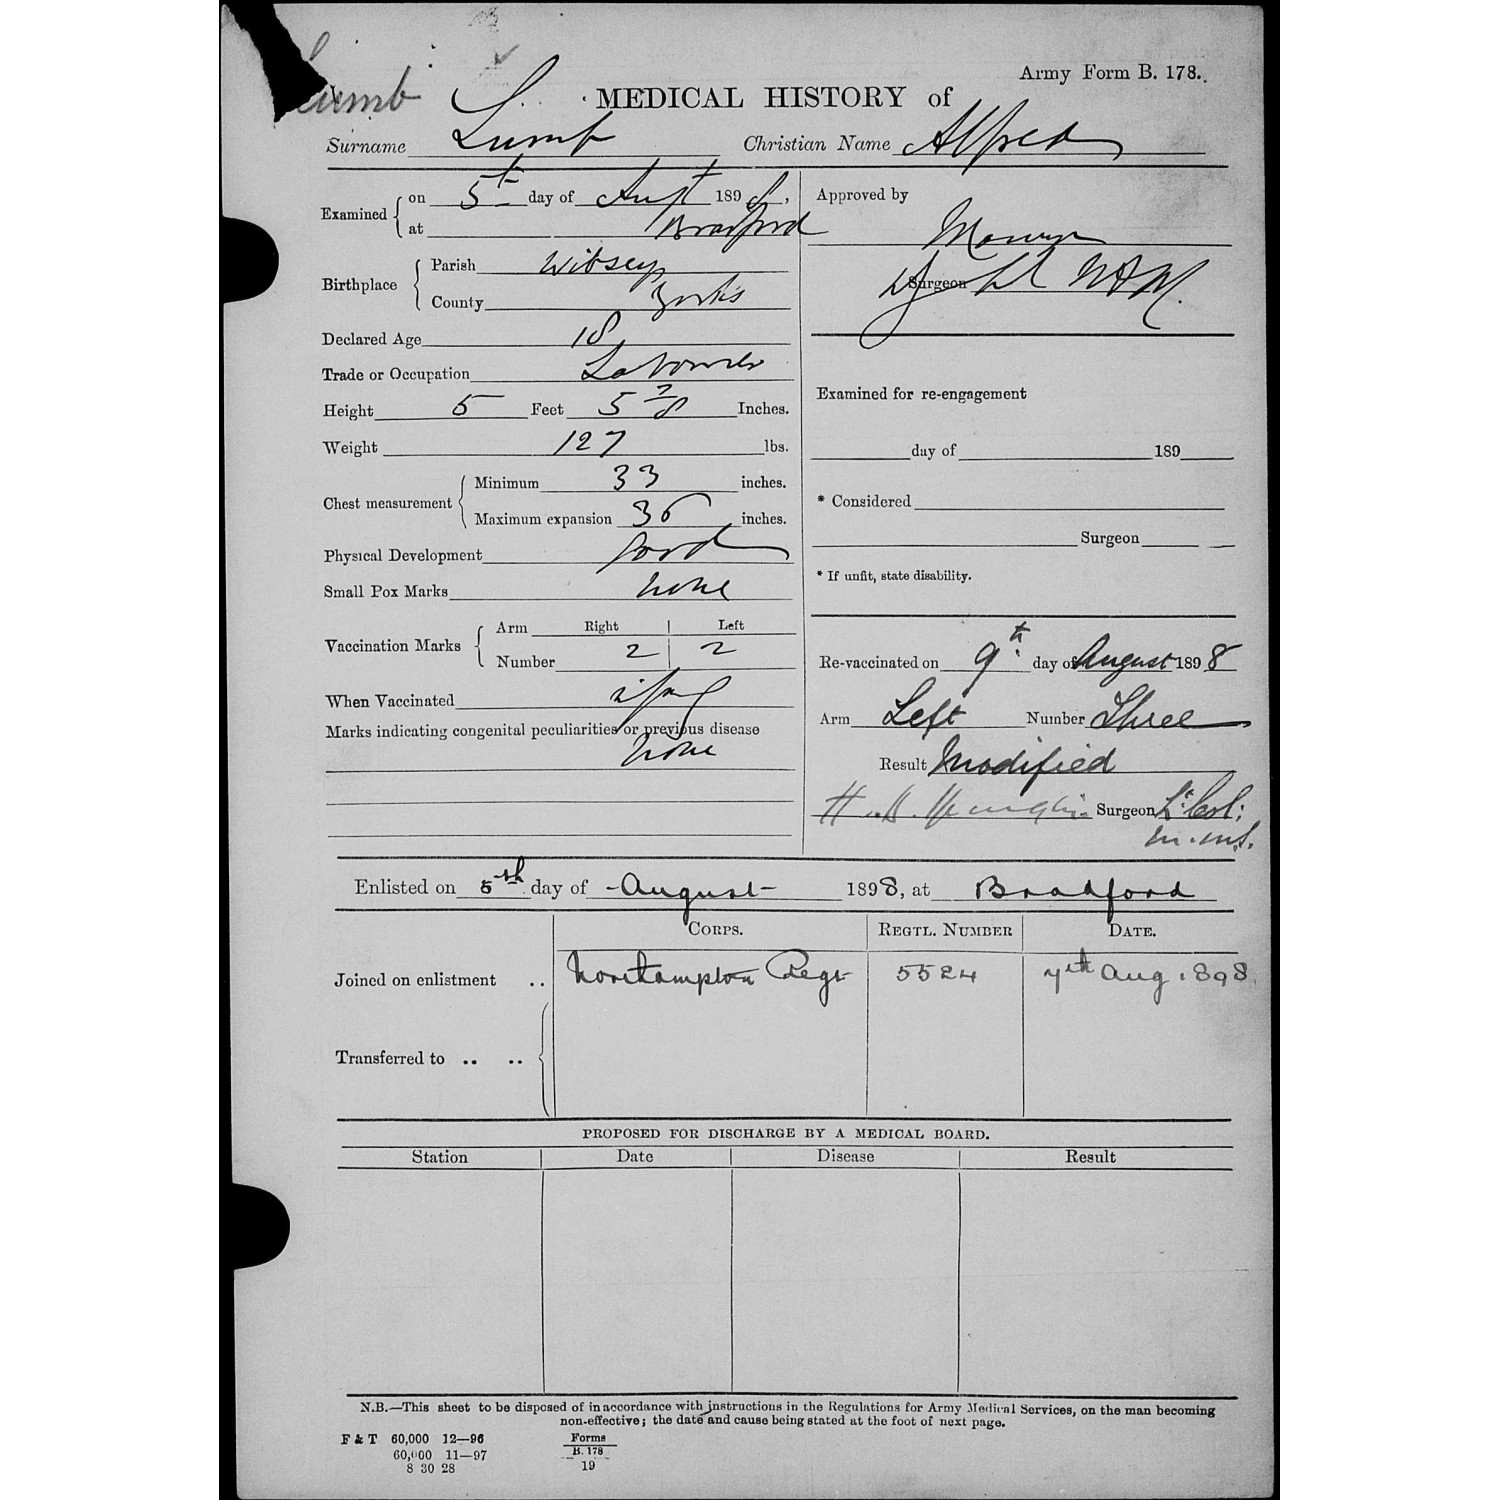 Lumb
Army Form B. 178.
MEDICAL HISTORY of
Surname Lumb Christian Name Alfred
Examined on 5th day of Augt 1898,
at Bradford
Birthplace Parish Wibsey
County Yorks
Declared Age 18
Trade or Occupation Labourer
Height 5 Feet 5 7/8 Inches.
Weight 127 lbs.
Chest measurement Minimum 33 inches.
Maximum expansion 36 inches.
Physical Development Good
Small Pox Marks none
Vaccination Marks Arm Right Left
Number 2 2
When Vaccinated infcy
Marks indicating congenital peculiarities or previous disease
none
Approved by
Surgeon
Examined for re-engagement
day of 189
* Considered
Surgeon
* If unfit, state disability.
Re-vaccinated on 9th day of August 1898
Arm Left Number Three
Result Modified
Surgeon Lt Col:
Enlisted on 5th day of August 1898, at Bradford
CORPS. REGTL. NUMBER DATE.
Joined on enlistment .. Northampton Regt 5524 7th Aug 1898
Transferred to .. ..
PROPOSED FOR DISCHARGE BY A MEDICAL BOARD.
Station Date Disease Result
N.B.—This sheet to be disposed of in accordance with instructions in the Regulations for Army Medical Services, on the man becoming
non-effective; the date and cause being stated at the foot of next page.
F & T 60,000 12—96
60,000 11—97
8 30 28
Forms
B. 178
19